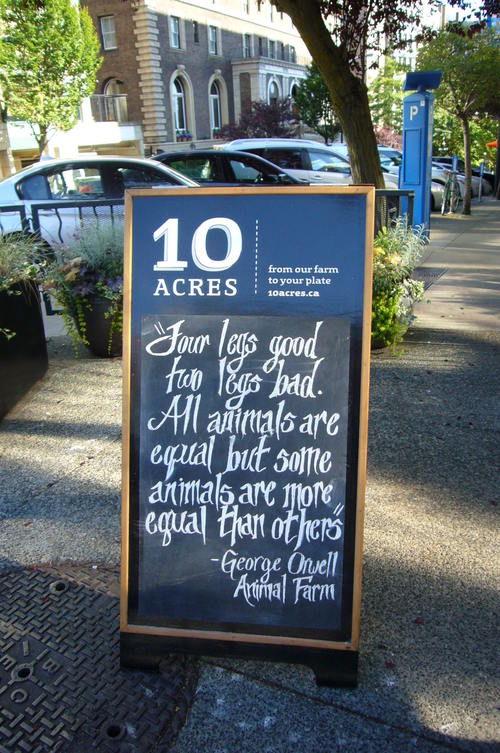 P
10
ACRES
from our farm
to your plate
10acres.ca
"Four legs good
two legs bad.
All animals are
equal but some
animals are more
equal than others"
-George Orwell
Animal Farm